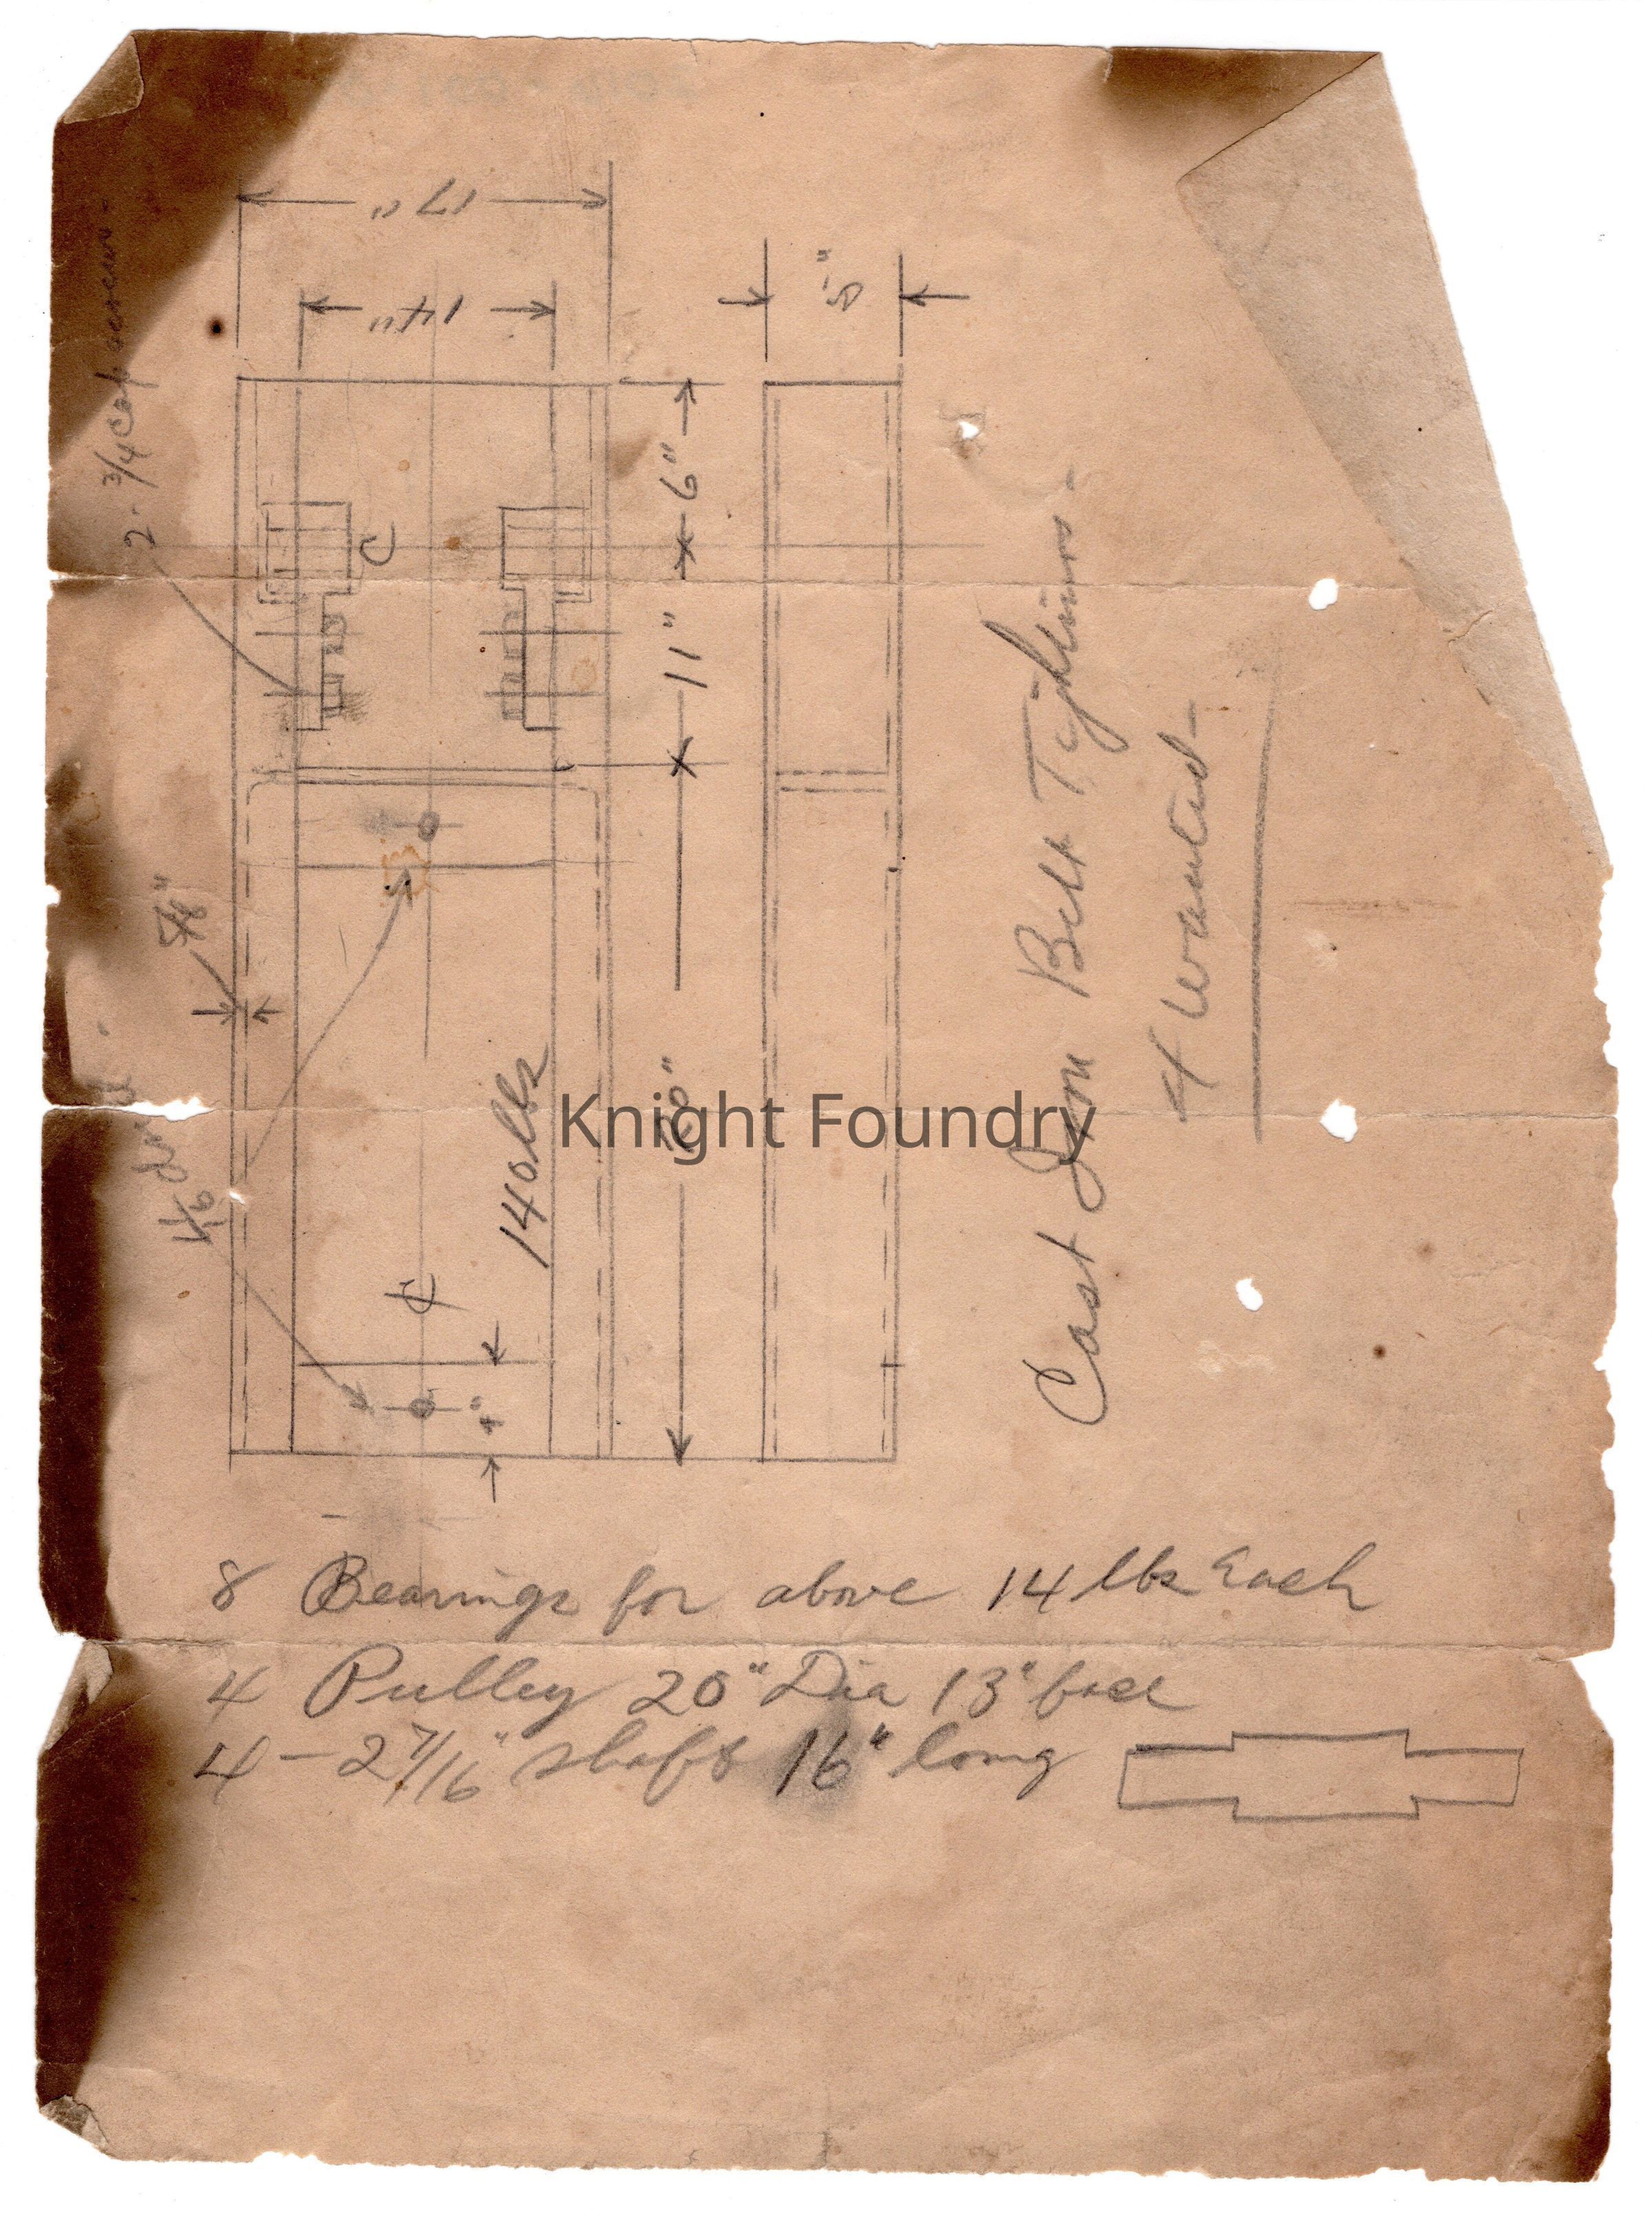 17"
14"
5"
2 - 3/4 Cap screw -
6"
11"
5/8"
140 lbs
4"
Cast Iron Belt Tightners -
4 Wanted -
Knight Foundry
8 Bearings for above 14 lbs Each
4 Pulley 20" Dia 13" face
4 - 2 7/16" shafts 16" long